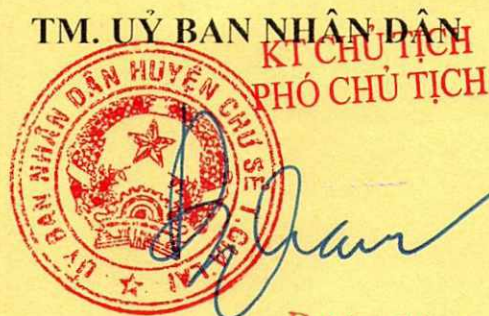 TM. UỶ BAN NHÂN DÂN
KT CHỦ TỊCH
PHÓ CHỦ TỊCH
UỶ BAN NHÂN DÂN HUYỆN CHƯ SÊ T. GIA LAI